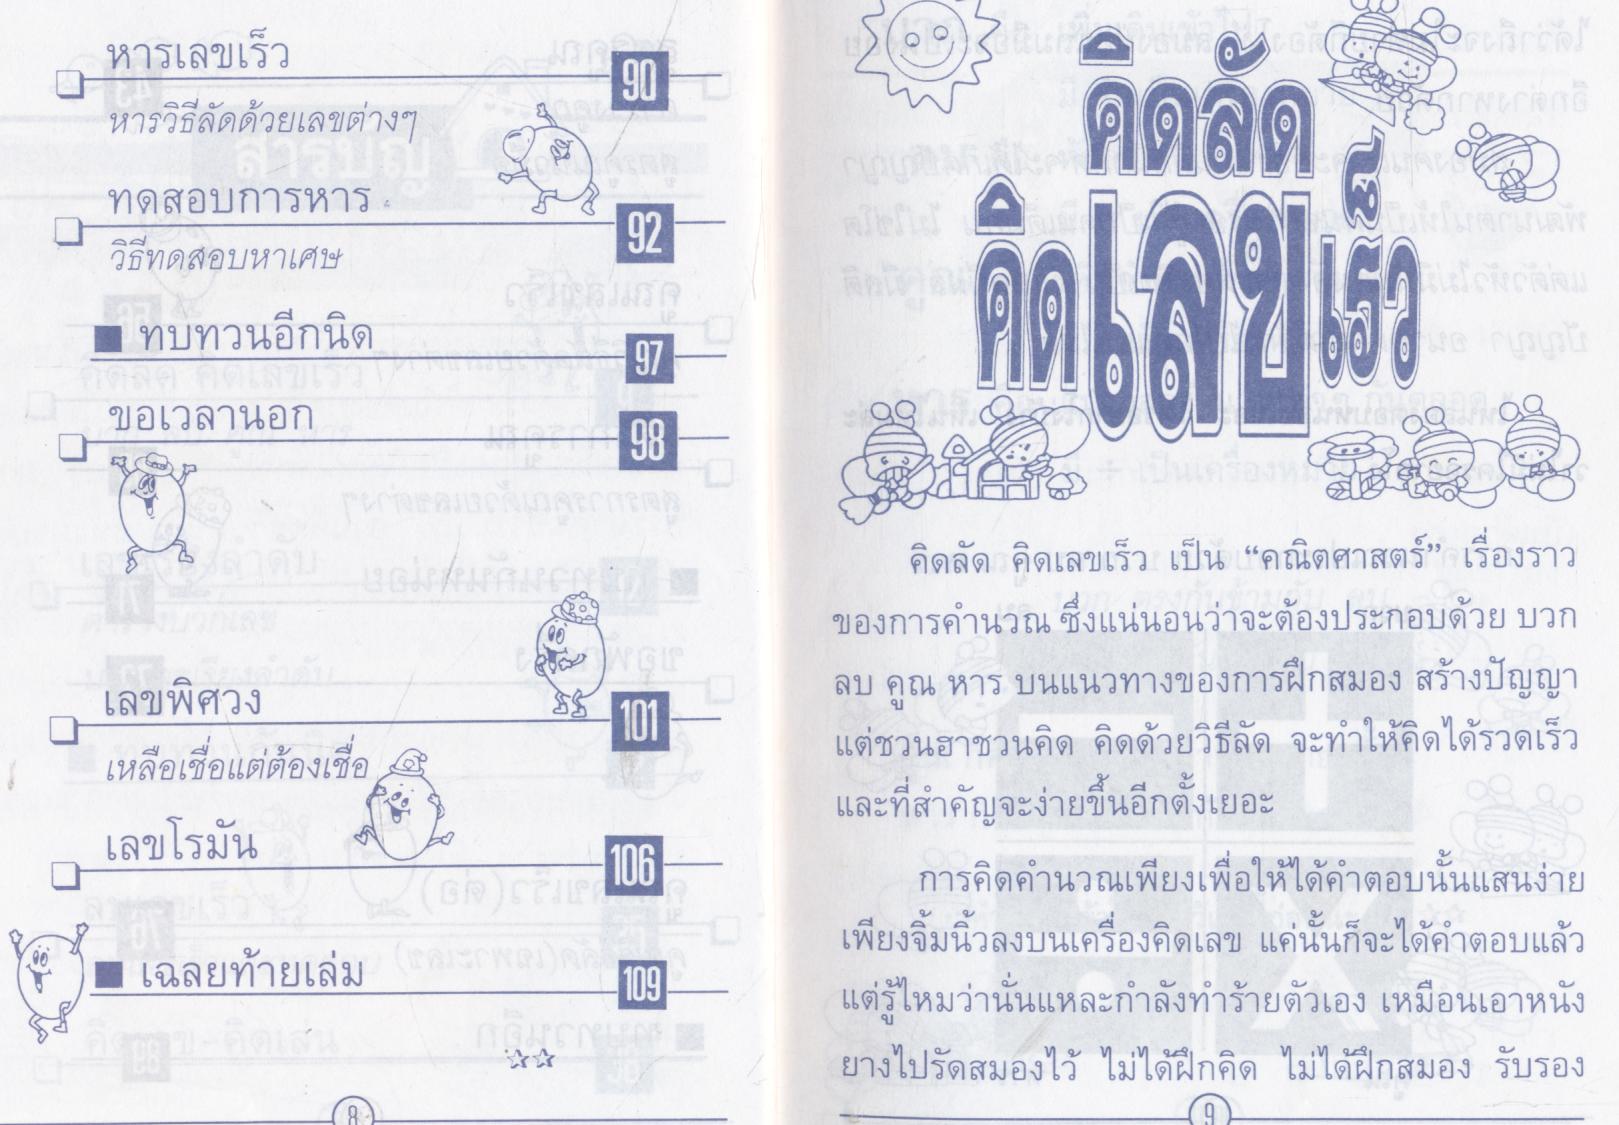 หารเลขเร็ว 90
หารวิธีลัดด้วยเลขต่างๆ
ทดสอบการหาร 92
วิธีทดสอบหาเศษ
ทบทวนอีกนิด 97
ขอเวลานอก 98
เลขพิศวง 101
เหลือเชื่อแต่ต้องเชื่อ
เลขโรมัน 106
เฉลยท้ายเล่ม 109
8
คิดลัด
คิดเลขเร็ว
คิดลัด คิดเลขเร็ว เป็น “คณิตศาสตร์” เรื่องราว
ของการคำนวณ ซึ่งแน่นอนว่าจะต้องประกอบด้วย บวก
ลบ คูณ หาร บนแนวทางของการฝึกสมอง สร้างปัญญา
แต่ชวนฮาชวนคิด คิดด้วยวิธีลัด จะทำให้คิดได้รวดเร็ว
และที่สำคัญจะง่ายขึ้นอีกตั้งเยอะ
การคิดคำนวณเพียงเพื่อให้ได้คำตอบนั้นแสนง่าย
เพียงจิ้มนิ้วลงบนเครื่องคิดเลข แค่นั้นก็จะได้คำตอบแล้ว
แต่รู้ไหมว่านั่นแหละกำลังทำร้ายตัวเอง เหมือนเอาหนัง
ยางไปรัดสมองไว้ ไม่ได้ฝึกคิด ไม่ได้ฝึกสมอง รับรอง
9